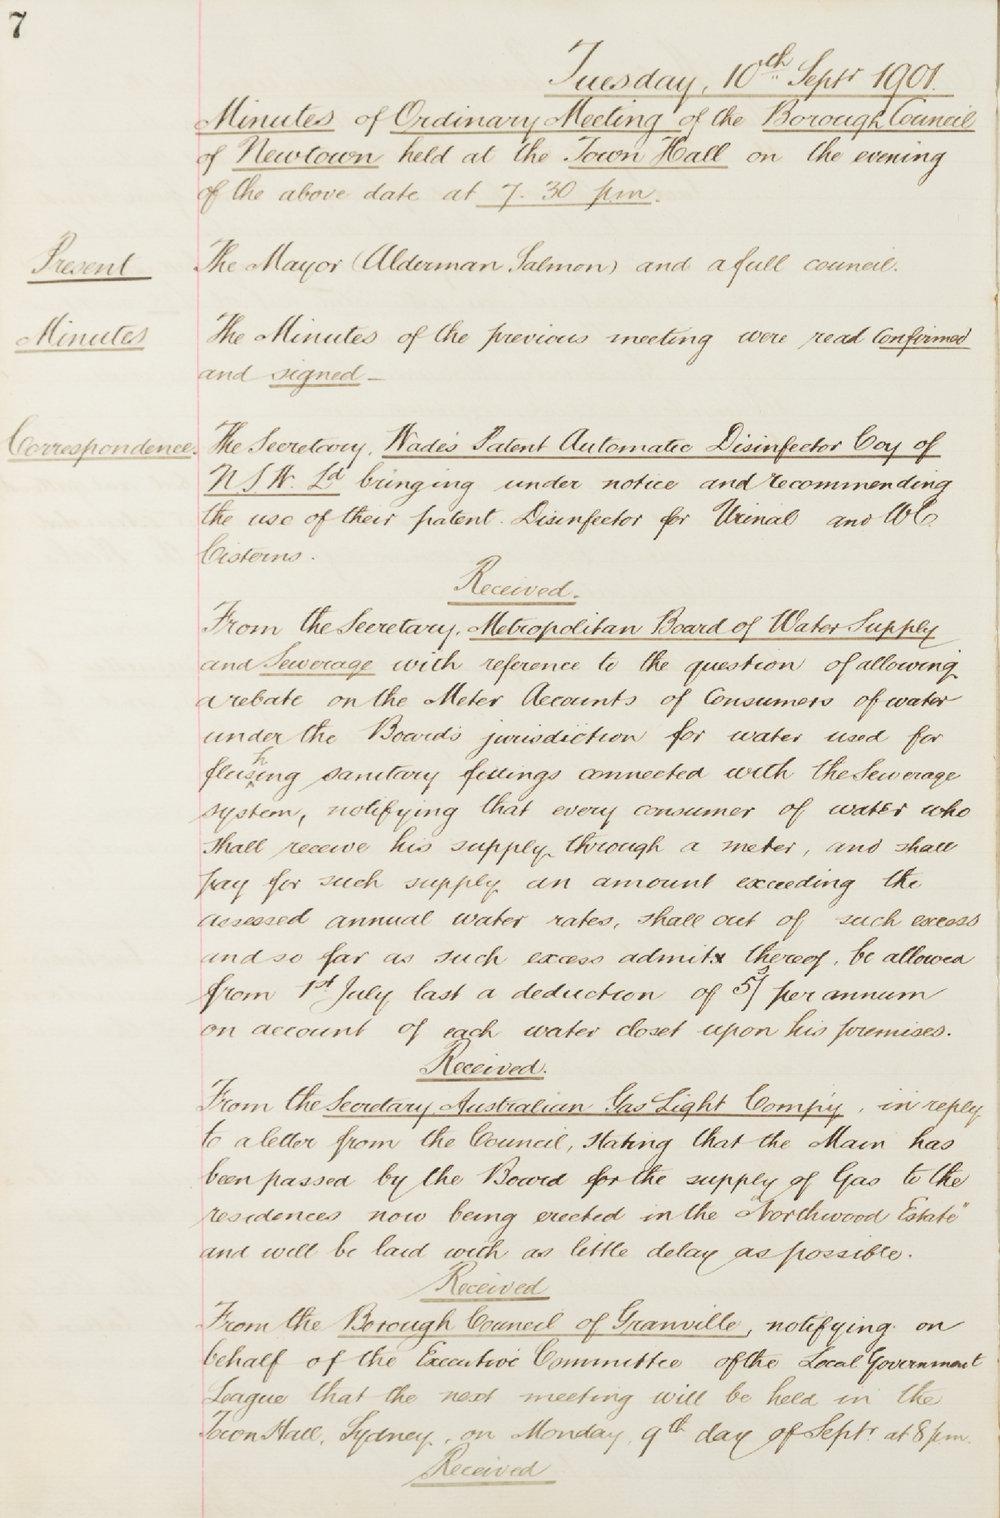 7
Tuesday, 10th Septr 1901.
Minutes of Ordinary Meeting of the Borough Council
of Newtown held at the Town Hall on the evening
of the above date at 7.30 pm.
Present The Mayor (Alderman Salmon) and a full council.
Minutes The Minutes of the previous meeting were read confirmed
and signed –
Correspondence The Secretary, Wade's Patent Automatic Disinfector Coy of
N S W. Ld bringing under notice and recommending
the use of their patent Disinfector for Urinal and WC
Cisterns.
Received.
From the Secretary, Metropolitan Board of Water Supply
and Sewerage with reference to the question of allowing
a rebate on the Meter Accounts of Consumers of water
under the Board's jurisdiction for water used for
flushing sanitary fittings connected with the Sewerage
system, notifying that every consumer of water who
shall receive his supply through a meter, and shall
pay for such supply an amount exceeding the
assessed annual water rates, shall out of such excess
and so far as such excess admits thereof, be allowed
from 1st July last a deduction of 5s/ per annum
on account of each water closet upon his premises.
Received.
From the Secretary, Australian Gas Light Compy, in reply
to a letter from the Council, stating that the Main has
been passed by the Board for the supply of Gas to the
residences now being erected in the "Northwood Estate"
and will be laid with as little delay as possible.
Received
From the Borough Council of Granville, notifying on
behalf of the Executive Committee of the Local Government
League that the next meeting will be held in the
Town Hall, Sydney, on Monday, 9th day of Septr at 8 pm.
Received